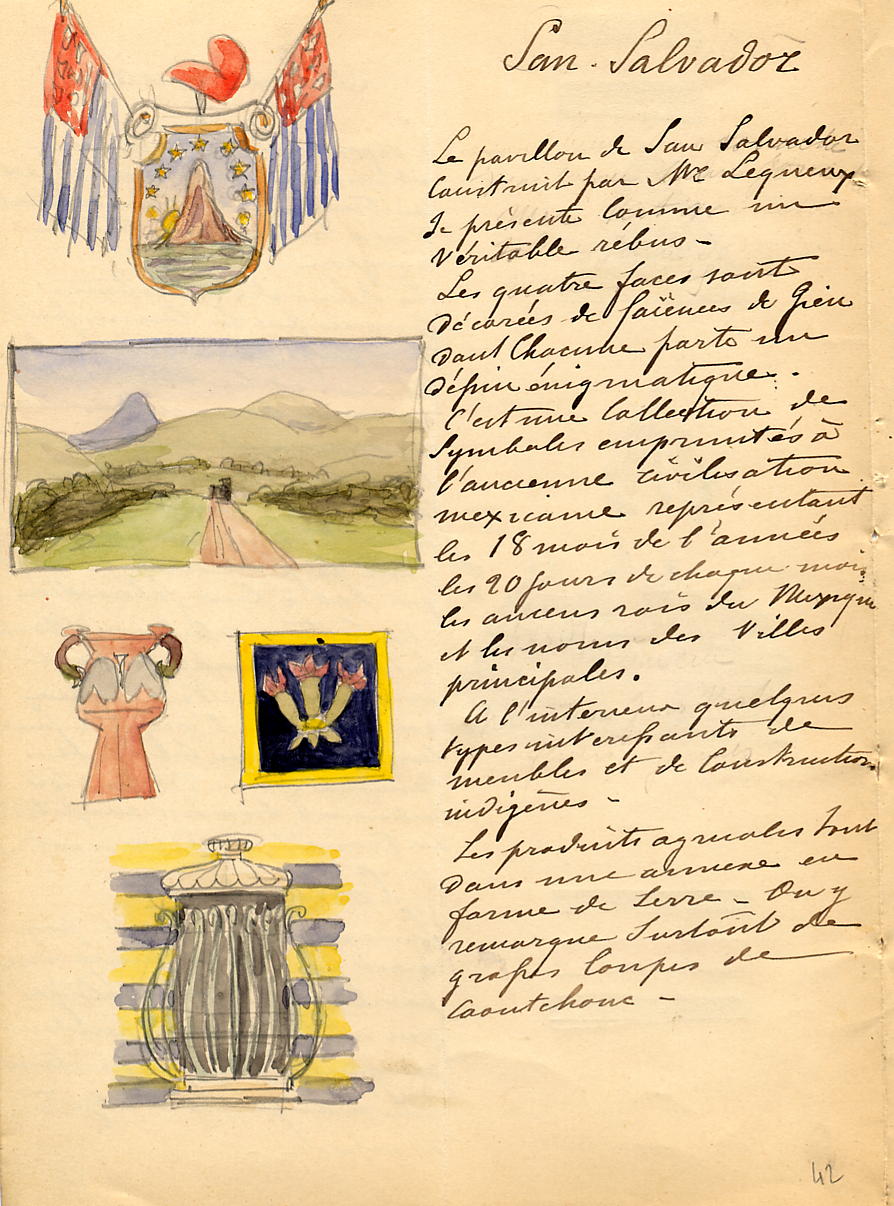 San-Salvador
Le pavillon de San Salvador
Construit par Mr Lequeux
Se présente Comme un
Véritable rébus -
Les quatre faces sont
Décorées de faïences de Gien
dont Chacune porte un
dessin énigmatique.
C'est une Collection de
Symboles empruntés à
l'ancienne civilisation
mexicaine représentant
les 18 mois de l'années
les 20 jours de chaque mois
les anciens rois du Mexique
et les noms des Villes
principales.
A l'interieur quelques
types interessants de
meubles et de Construction
indigènes -
Les produits agricoles sont
Dans une annexe en
forme de Serre - On y
remarque Surtout de
grosses loupes de
Caoutchouc -
42